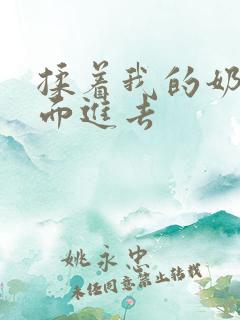 揉着我的奶
而進去
姚永忠
未经同意禁止转载